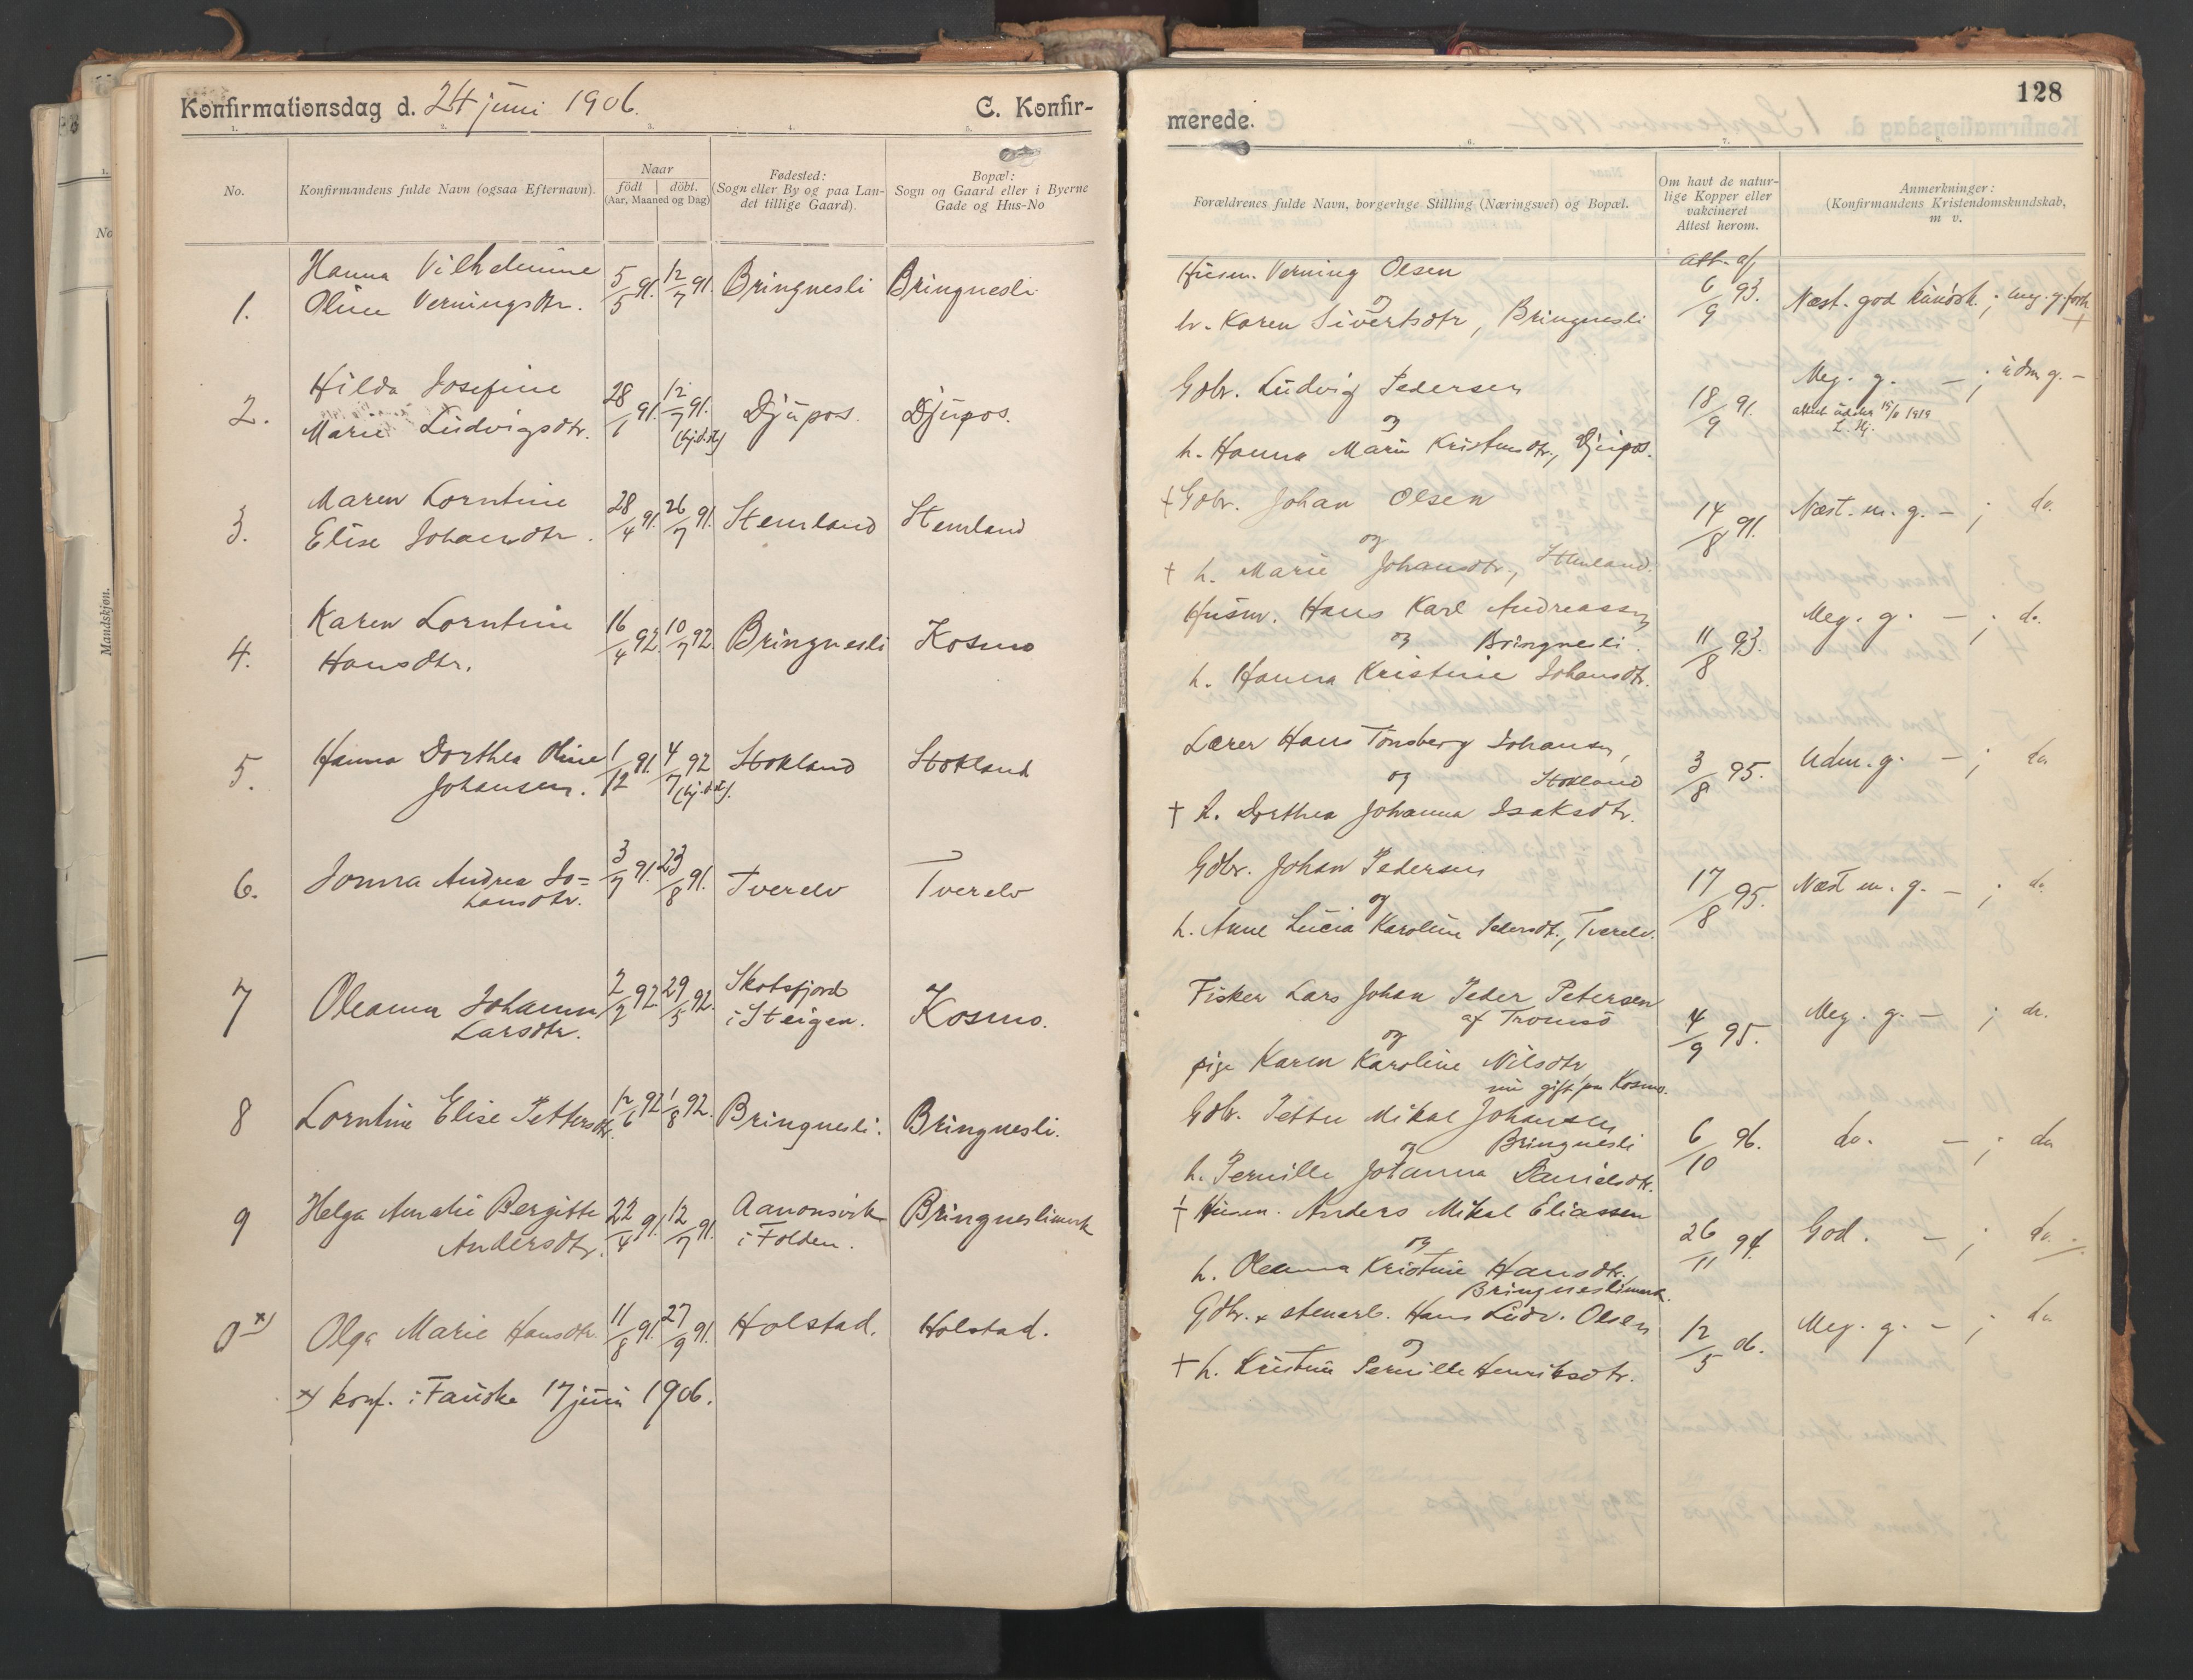 Konfirmationsdag d. 24 juni 1906.
C. Konfir-
1. 2. 3. 4. 5.
No.
Konfirmandens fulde Navn (ogsaa Efternavn).
Naar
født | døbt.
(Aar, Maaned og Dag)
Fødested:
(Sogn eller By og paa Lan-
det tillige Gaard).
Bopæl:
Sogn og Gaard eller i Byerne
Gade og Hus-No
1.
Hanna Vilhelmine
Oline Verningsdtr.
5/5 91. 12/7 91.
Bringnesli
Bringnesli
2.
Hilda Josefine
Marie Ludvigsdtr.
28/1 91. 12/7 91.
(hj.d. st)
Djupos.
Djupos.
3.
Maren Lorntine
Elise Johansdtr.
28/4 91. 26/7 91.
Stemland
Stemland
4.
Karen Lorntine
Hansdtr.
16/4 92. 10/7 92.
Bringnesli
Kosmo
5.
Hanna Dorthea Oline
Johansen.
1/12 91. 4/7 92
(hj.d.st).
Stokland
Stokland
6.
Jonna Andrea Jo=
hansdtr.
3/7 91. 23/8 91.
Tverelv
Tverelv
7
Oleanna Johanna
Larsdtr.
2/2 92 29/5 92.
Skotsfjord
i Steigen.
Kosmo.
8
Lorntine Elise Pettersdtr.
12/6 92 1/8 92.
Bringnesli.
Bringnesli.
9
Helga Amalie Bergitte
Andersdtr.
22/4 91. 12/7 91.
Aanonsvik
i Folden.
Bringneslimark
0 x)
Olga Marie Hansdtr.
11/8 91. 27/9 91.
Holstad.
Holstad.
x) konf. i Fauske 17 juni 1906.
128
merede.
6. 7. 8.
Forældrenes fulde Navn, borgerlige Stilling (Næringsvei) og Bopæl.
Om havt de natur-
lige Kopper eller
vakcineret
Attest herom.
Anmerkninger:
(Konfirmandens Kristendomskundskab,
m v.
Husm. Verning Olsen
og
h. Karen Sivertsdtr, Bringnesli
att. af
6/9 93.
Næst. god kundsk. ; meg. g. forh.
Gdbr. Ludvig Pedersen
og
h. Hanna Marie Kristensdtr., Djupos.
18/9 91.
Meg. g. — ; udm g. —
1919
+ Gdbr. Johan Olsen
og
+ h. Marie Johansdtr., Stemland.
14/8 91.
Næst. m. g. — ; do.
Husm. Hans Karl Andreassen
og Bringnesli.
h. Hanna Kristine Johansdtr.
11/8 93.
Meg. g. — ; do.
Lærer Hans Tønsberg Johansen,
og Stokland
+ h. Dorthea Johanna Isaksdtr.
3/8 95.
Udm. g. — ; do
Gdbr. Johan Pedersen
og
h. Anne Lucia Karoline Pedersdt., Tverelv.
17/8 95.
Næst m. g. — ; do.
Fisker Lars Johan Peder Petersen
af Tromsø
og
pige Karen Karoline Nilsdtr
nu gift paa Kosmo.
4/9 95.
Meg. g. — ; do.
Gdbr. Petter Mikal Johansen
og Bringnesli
h. Pernille Johanna Danielsdtr.
6/10 96.
do. — ; do
+ Husm. Anders Mikal Eliassen
og
h. Oleanna Kristine Hansdtr.
Bringneslimark.
26/11 94.
God. — ; do.
Gdbr. x stenarb. Hans Ludv. Olsen
og
+ h. Kristine Pernille Henriksdtr.
12/5 06.
Meg. g. — ; do
Mandskjøn.